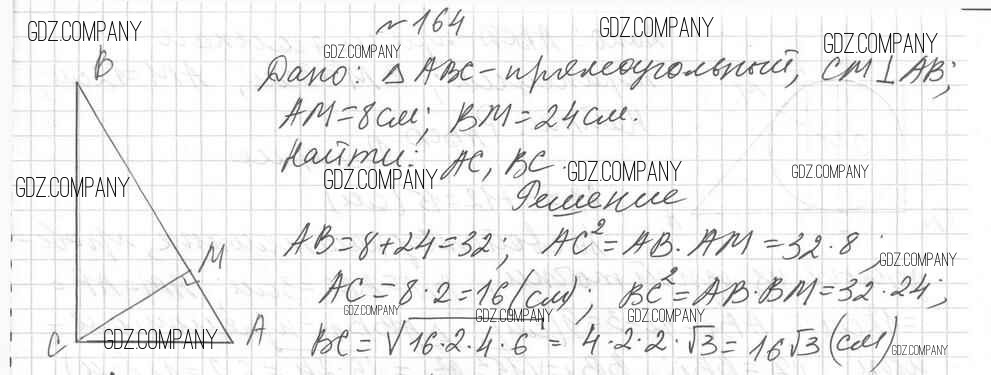 № 164
GDZ.COMPANY
GDZ.COMPANY
GDZ.COMPANY
GDZ.COMPANY
B
Дано: △ ABC - прямоугольный, CM ⊥ AB;
AM = 8 см; BM = 24 см.
Найти: AC, BC.
GDZ.COMPANY
GDZ.COMPANY
GDZ.COMPANY
GDZ.COMPANY
Решение
AB = 8 + 24 = 32; AC² = AB · AM = 32 · 8;
M
GDZ.COMPANY
AC = 8 · 2 = 16 (см); BC² = AB · BM = 32 · 24;
GDZ.COMPANY
GDZ.COMPANY
GDZ.COMPANY
C
GDZ.COMPANY
A
BC = √16 · 2 · 4 · 6 = 4 · 2 · 2 · √3 = 16√3 (см)
GDZ.COMPANY